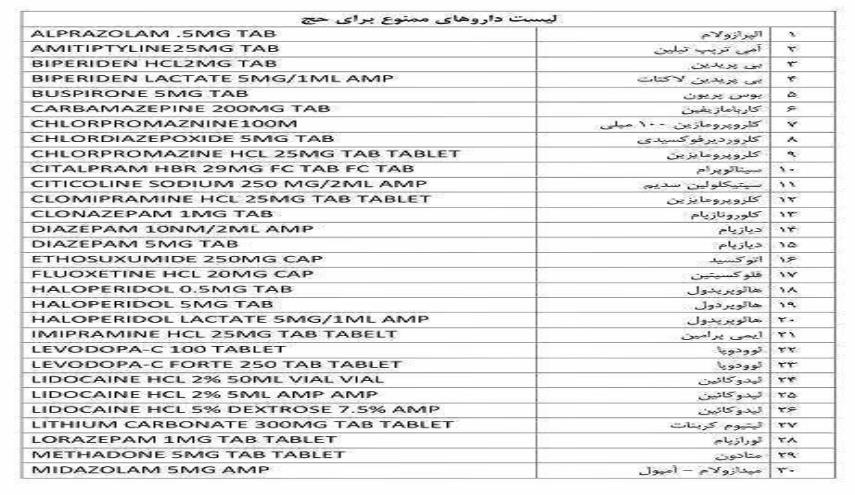 لیست داروهای ممنوع برای حج
ALPRAZOLAM .5MG TAB آلپرازولام ۱
AMITIPTYLINE25MG TAB آمی تریپ تیلین ۲
BIPERIDEN HCL2MG TAB بی پریدین ۳
BIPERIDEN LACTATE 5MG/1ML AMP بی پریدین لاکتات ۴
BUSPIRONE 5MG TAB بوس پریون ۵
CARBAMAZEPINE 200MG TAB کاربامازیفین ۶
CHLORPROMAZNINE100M کلروپرومازین ۱۰۰ میلی ۷
CHLORDIAZEPOXIDE 5MG TAB کلروردیرفوکسیدی ۸
CHLORPROMAZINE HCL 25MG TAB TABLET کلروپرومایزین ۹
CITALPRAM HBR 29MG FC TAB FC TAB سیتالوپرام ۱۰
CITICOLINE SODIUM 250 MG/2ML AMP سیتیکلولین سدیم ۱۱
CLOMIPRAMINE HCL 25MG TAB TABLET کلروپرومایزین ۱۲
CLONAZEPAM 1MG TAB کلورونازپام ۱۳
DIAZEPAM 10NM/2ML AMP دیازپام ۱۴
DIAZEPAM 5MG TAB دیازپام ۱۵
ETHOSUXUMIDE 250MG CAP اتوکسید ۱۶
FLUOXETINE HCL 20MG CAP فلوکسیتین ۱۷
HALOPERIDOL 0.5MG TAB هالوپریدول ۱۸
HALOPERIDOL 5MG TAB هالوپردول ۱۹
HALOPERIDOL LACTATE 5MG/1ML AMP هالوپریدول ۲۰
IMIPRAMINE HCL 25MG TAB TABELT ایمی پرامین ۲۱
LEVODOPA-C 100 TABLET لوودوپا ۲۲
LEVODOPA-C FORTE 250 TAB TABLET لوودوپا ۲۳
LIDOCAINE HCL 2% 50ML VIAL VIAL لیدوکائین ۲۴
LIDOCAINE HCL 2% 5ML AMP AMP لیدوکائین ۲۵
LIDOCAINE HCL 5% DEXTROSE 7.5% AMP لیدوکائین ۲۶
LITHIUM CARBONATE 300MG TAB TABLET لیتیوم کربنات ۲۷
LORAZEPAM 1MG TAB TABLET لورازپام ۲۸
METHADONE 5MG TAB TABLET متادون ۲۹
MIDAZOLAM 5MG AMP میدازولام – آمپول ۳۰